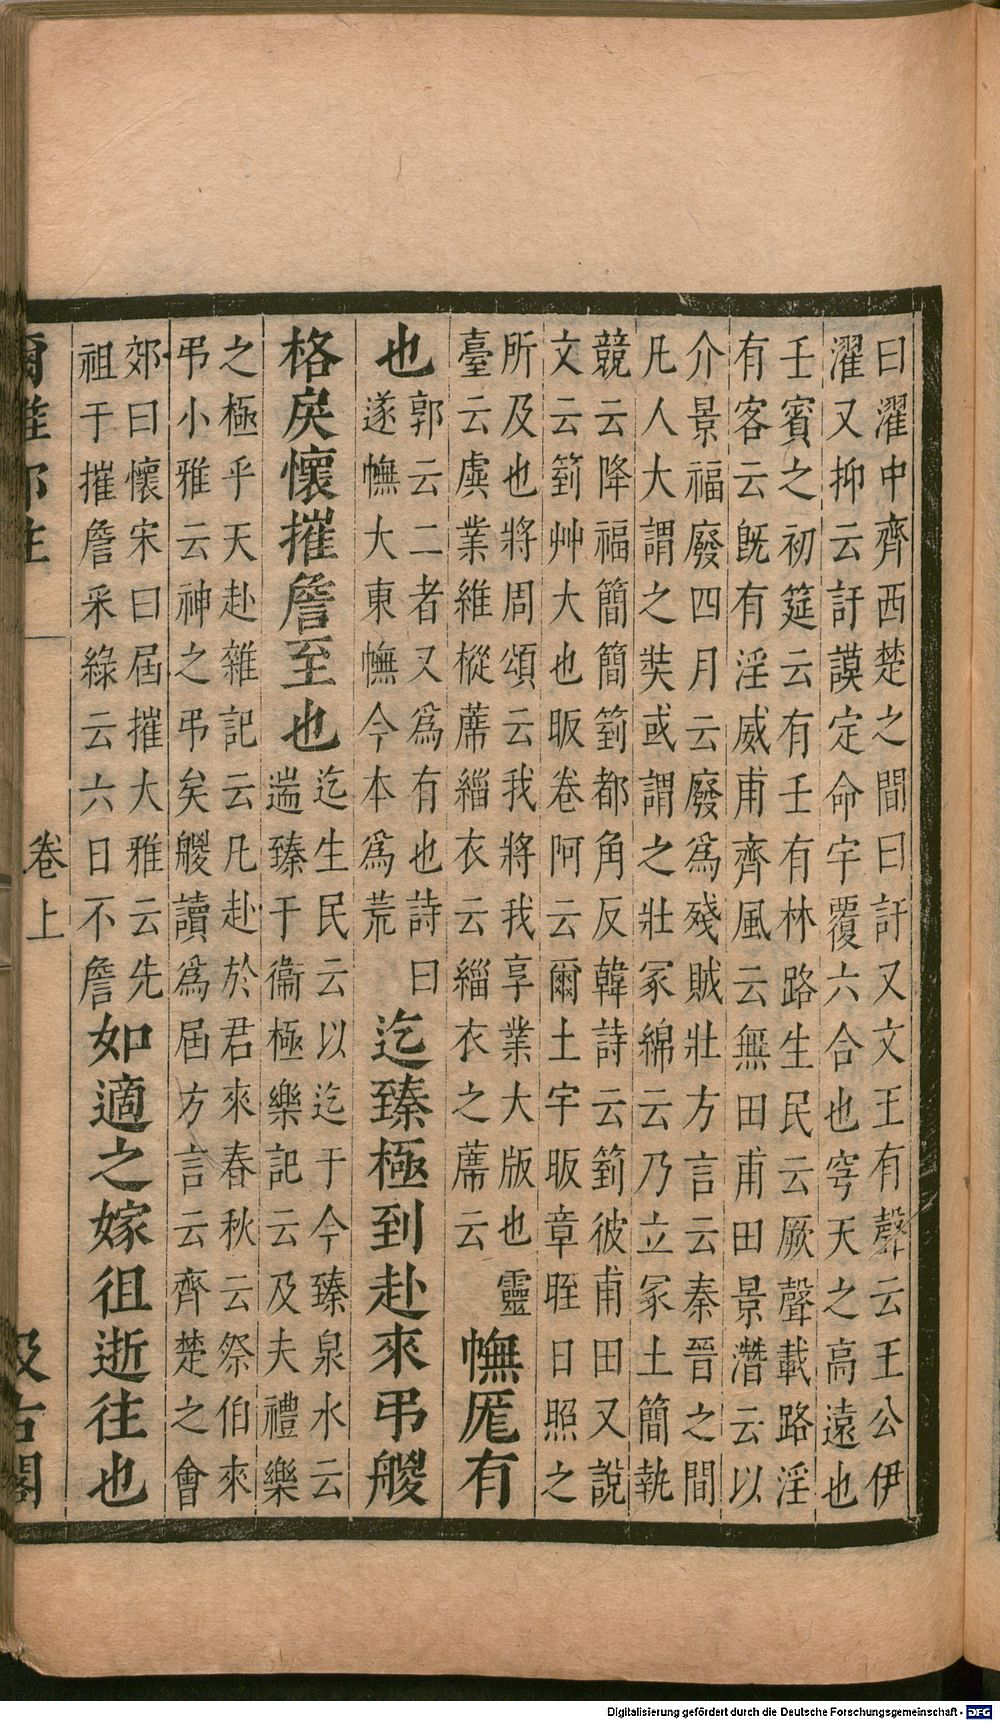 曰濯中齊西楚之間曰訏又文王有聲云王公伊
濯又抑云訏謨定命宇覆六合也穹天之高遠也
壬賓之初筵云有壬有林路生民云厥聲載路淫
有客云旣有淫威甫齊風云無田甫田景潛云以
介景福廢四月云廢爲殘賊壯方言云秦晉之間
凡人大謂之奘或謂之壯冢綿云乃立冢土簡執
競云降福簡簡箌都角反韓詩云箌彼甫田又說
文云箌艸大也昄卷阿云爾土宇昄章晊日照之
所及也將周頌云我將我享業大版也靈
臺云虡業維樅蓆緇衣云緇衣之蓆云
幠厖有
也
郭云二者又爲有也詩曰
遂幠大東幠今本爲荒
迄臻極到赴來弔艐
格戾懷摧詹至也
迄生民云以迄于今臻泉水云
遄臻于衞極樂記云及夫禮樂
之極乎天赴雜記云凡赴於君來春秋云祭伯來
弔小雅云神之弔矣艐讀爲屆方言云齊楚之會
郊曰懷宋曰屆摧大雅云先
祖于摧詹采綠云六日不詹
如適之嫁徂逝往也
爾雅郭注
卷上
汲古閣
Digitalisierung gefördert durch die Deutsche Forschungsgemeinschaft - DFG